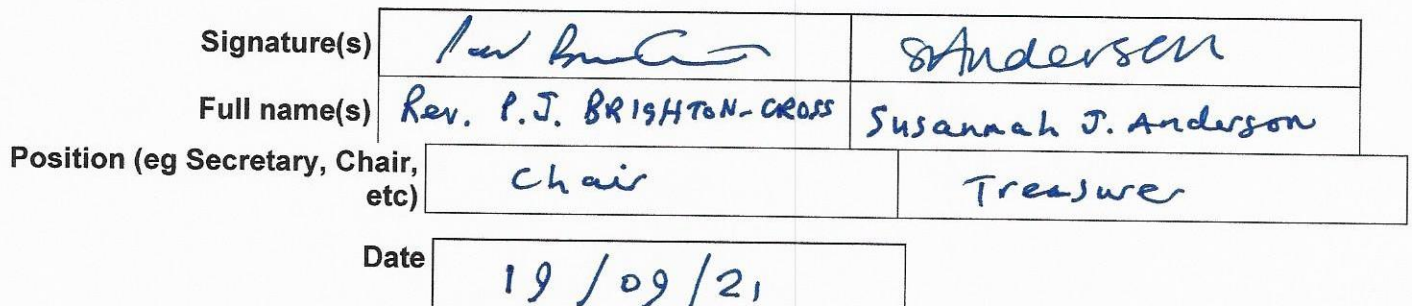 Signature(s) SAnderson
Full name(s) Rev. P.J. BRIGHTON-CROSS Susannah J. Anderson
Position (eg Secretary, Chair, etc) Chair Treasurer
Date 19/09/21